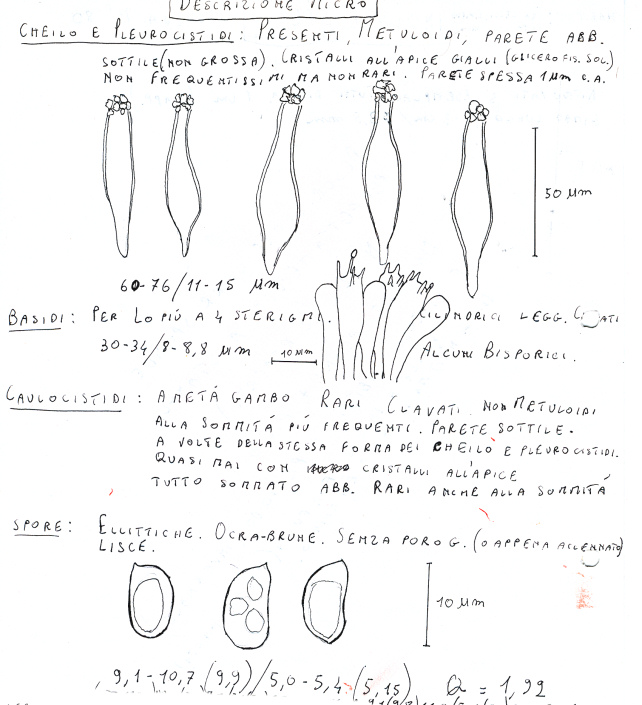 DESCRIZIONE MICRO
CHEILO E PLEUROCISTIDI: PRESENTI, METULOIDI, PARETE ABB.
SOTTILE (NON GROSSA). CRISTALLI ALL'APICE GIALLI (GLICERO FIS. SOL.)
NON FREQUENTISSIMI MA NON RARI. PARETE SPESSA 1 µm C.A.
50 µm
60-76/11-15 µm
BASIDI: PER LO PIÚ A 4 STERIGMI. CILINDRICI LEGG. CLAVATI
30-34/8-8,8 µm 10 µm ALCUNI BISPORICI.
CAULOCISTIDI: A METÁ GAMBO RARI CLAVATI NON METULOIDI
ALLA SOMMITÁ PIÚ FREQUENTI. PARETE SOTTILE.
A VOLTE DELLA STESSA FORMA DEI CHEILO E PLEUROCISTIDI.
QUASI MAI CON CRISTALLI ALL'APICE
TUTTO SOMMATO ABB. RARI ANCHE ALLA SOMMITÁ
SPORE: ELLITTICHE. OCRA-BRUNE. SENZA PORO G. (O APPENA ACCENNATO)
LISCE.
10 µm
9,1-10,7 (9,9)/5,0-5,4 (5,15) Q = 1,92